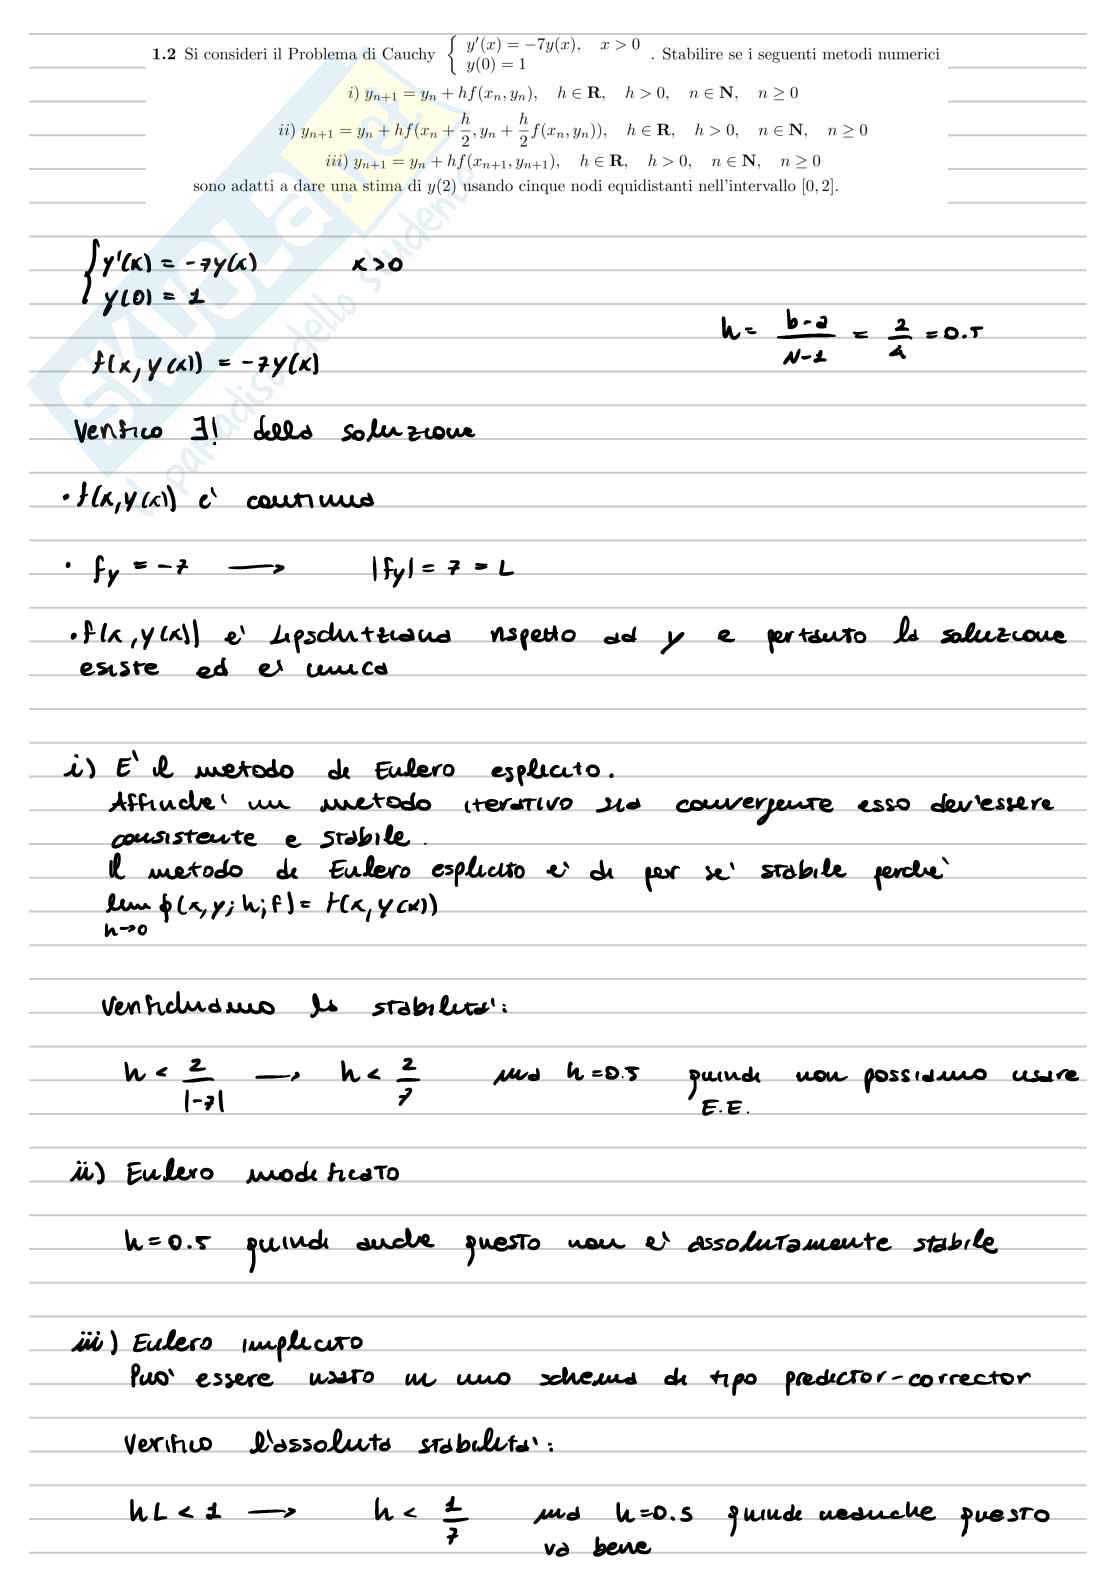 1.2 Si consideri il Problema di Cauchy { y'(x) = −7y(x), x > 0
y(0) = 1 . Stabilire se i seguenti metodi numerici
i) yₙ₊₁ = yₙ + hf(xₙ, yₙ), h ∈ R, h > 0, n ∈ N, n ≥ 0
ii) yₙ₊₁ = yₙ + hf(xₙ + h/2, yₙ + h/2 f(xₙ, yₙ)), h ∈ R, h > 0, n ∈ N, n ≥ 0
iii) yₙ₊₁ = yₙ + hf(xₙ₊₁, yₙ₊₁), h ∈ R, h > 0, n ∈ N, n ≥ 0
sono adatti a dare una stima di y(2) usando cinque nodi equidistanti nell'intervallo [0, 2].
SKUOLA.net
il paradiso dello studente
{ y'(x) = -7y(x) x>0
y(0) = 1
h = b-a/N-1 = 2/4 = 0.5
f(x, y(x)) = -7y(x)
Verifico ∃! della soluzione
• f(x,y(x)) e' continua
• fy = -7 → |fy| = 7 = L
• f(x, y(x)) e' Lipschitziana rispetto ad y e pertanto la soluzione
esiste ed e' unica
i) E' il metodo di Eulero esplicito.
Affinche' un metodo iterativo sia convergente esso dev'essere
consistente e stabile.
Il metodo di Eulero esplicito e' di per se' stabile perche'
lim h→0 ϕ(x,y;h;f) = f(x, y(x))
Verifichiamo la stabilita':
h < 2/|-7| → h < 2/7 ma h=0.5 quindi non possiamo usare
E.E.
ii) Eulero modificato
h=0.5 quindi anche questo non e' assolutamente stabile
iii) Eulero implicito
Puo' essere usato in uno schema di tipo predictor-corrector
Verifico l'assoluta stabilita':
hL < 1 → h < 1/7 ma h=0.5 quindi neanche questo
va bene